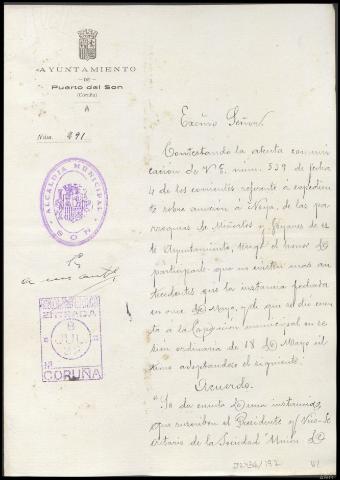 AYUNTAMIENTO
DE
Puerto del Son
(Coruña)
A
Núm. 291
ALCALDIA MUNICIPAL
SON
ENTRADA
8
JUL
CORUÑA
Excmo Señor.
Contestando la atenta comuni-
cacion de V. E. núm. 539 de fecha
4 de los corrientes referente á expedien-
te sobre anexión á Noya, de las pa-
rroquias de Miñortos y Goyanes de es-
te Ayuntamiento, tengo el honor de
participarle que no existen mas an-
tecedentes que la instancia fechada
en once de Mayo, y de que se dio cuen-
ta á la Corporación municipal en se-
sión ordinaria de 18 de Mayo úl-
timo adoptandose el siguiente.
Acuerdo.
"Se da cuenta de una instancia,
que suscriben el Presidente y Vice-Se
cretario de la Sociedad Unión de